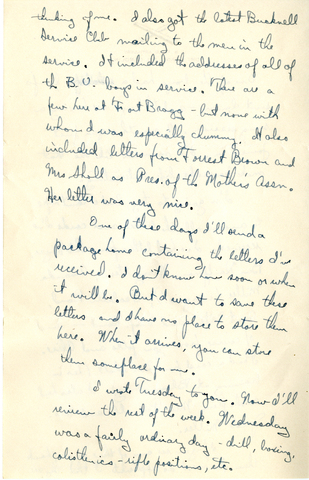 thinking of me. I also got the latest Bucknell
Service Club mailing to the men in the
service. It included the addresses of all of
the B.U. boys in service. There are a
few here at Fort Bragg - but none with
whom I was especially chummy. It also
included letters from Forrest Brown and
Mrs. Sholl as Pres. of the Mother's Assn.
Her letter was very nice.
One of these days I'll send a
package home containing the letters I've
received. I don't know how soon or when
it will be. But I want to save these
letters and I have no place to store them
here. When it arrives, you can store
them someplace for me.
I wrote Tuesday to you. Now I'll
review the rest of the week. Wednesday
was a fairly ordinary day - drill, boxing,
calisthenics - rifle positions, etc.